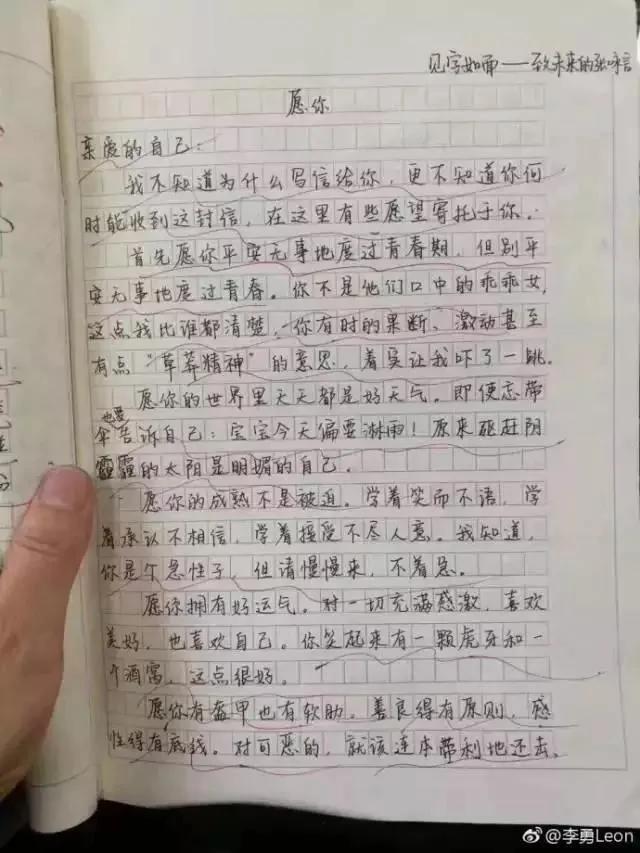 见字如面——致未来的张咏言
愿你
亲爱的自己：
我不知道为什么写信给你，更不知道你何
时能收到这封信，在这里有些愿望寄托于你。
首先愿你平安无事地度过青春期，但别平
安无事地度过青春。你不是他们口中的乖乖女，
这点我比谁都清楚，你有时的果断、激动甚至
有点“草莽精神”的意思，着实让我吓了一跳。
愿你的世界里天天都是好天气。即便忘带
也要
伞告诉自己：宝宝今天偏要淋雨！原来驱赶阴
霾的太阳是明媚的自己.
愿你的成熟不是被迫。学着笑而不语，学
着承认不相信，学着接受不尽人意。我知道，
你是个急性子，但请慢慢来，不着急。
愿你拥有好运气。对一切充满感激，喜欢
美好，也喜欢自己。你笑起来有一颗虎牙和一
个酒窝，这点很好。
愿你有盔甲也有软肋。善良得有原则，感
性得有底线。对可恶的，就该连本带利地还去。
@李勇Leon